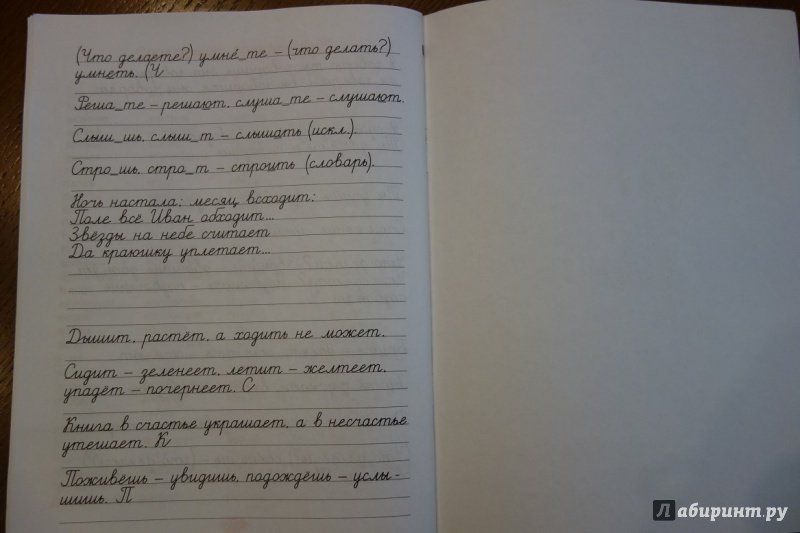 (Что делаете?) умне́_те – (что делать?)
умнеть. (Ч
Реша_те – решают, слуша_те – слушают.
Слыш_шь, слыш_т – слышать (искл.).
Стро_шь, стро_т – строить (словарь).
Ночь настала; месяц всходит;
Поле всё Иван обходит...
Звёзды на небе считает
Да краюшку уплетает...
Дышит, растёт, а ходить не может.
Сидит – зеленеет, летит – желтеет,
упадёт – почернеет. С
Книга в счастье украшает, а в несчастье
утешает. К
Поживёшь – увидишь, подождёшь – услы-
шишь. П
Лабиринт.ру